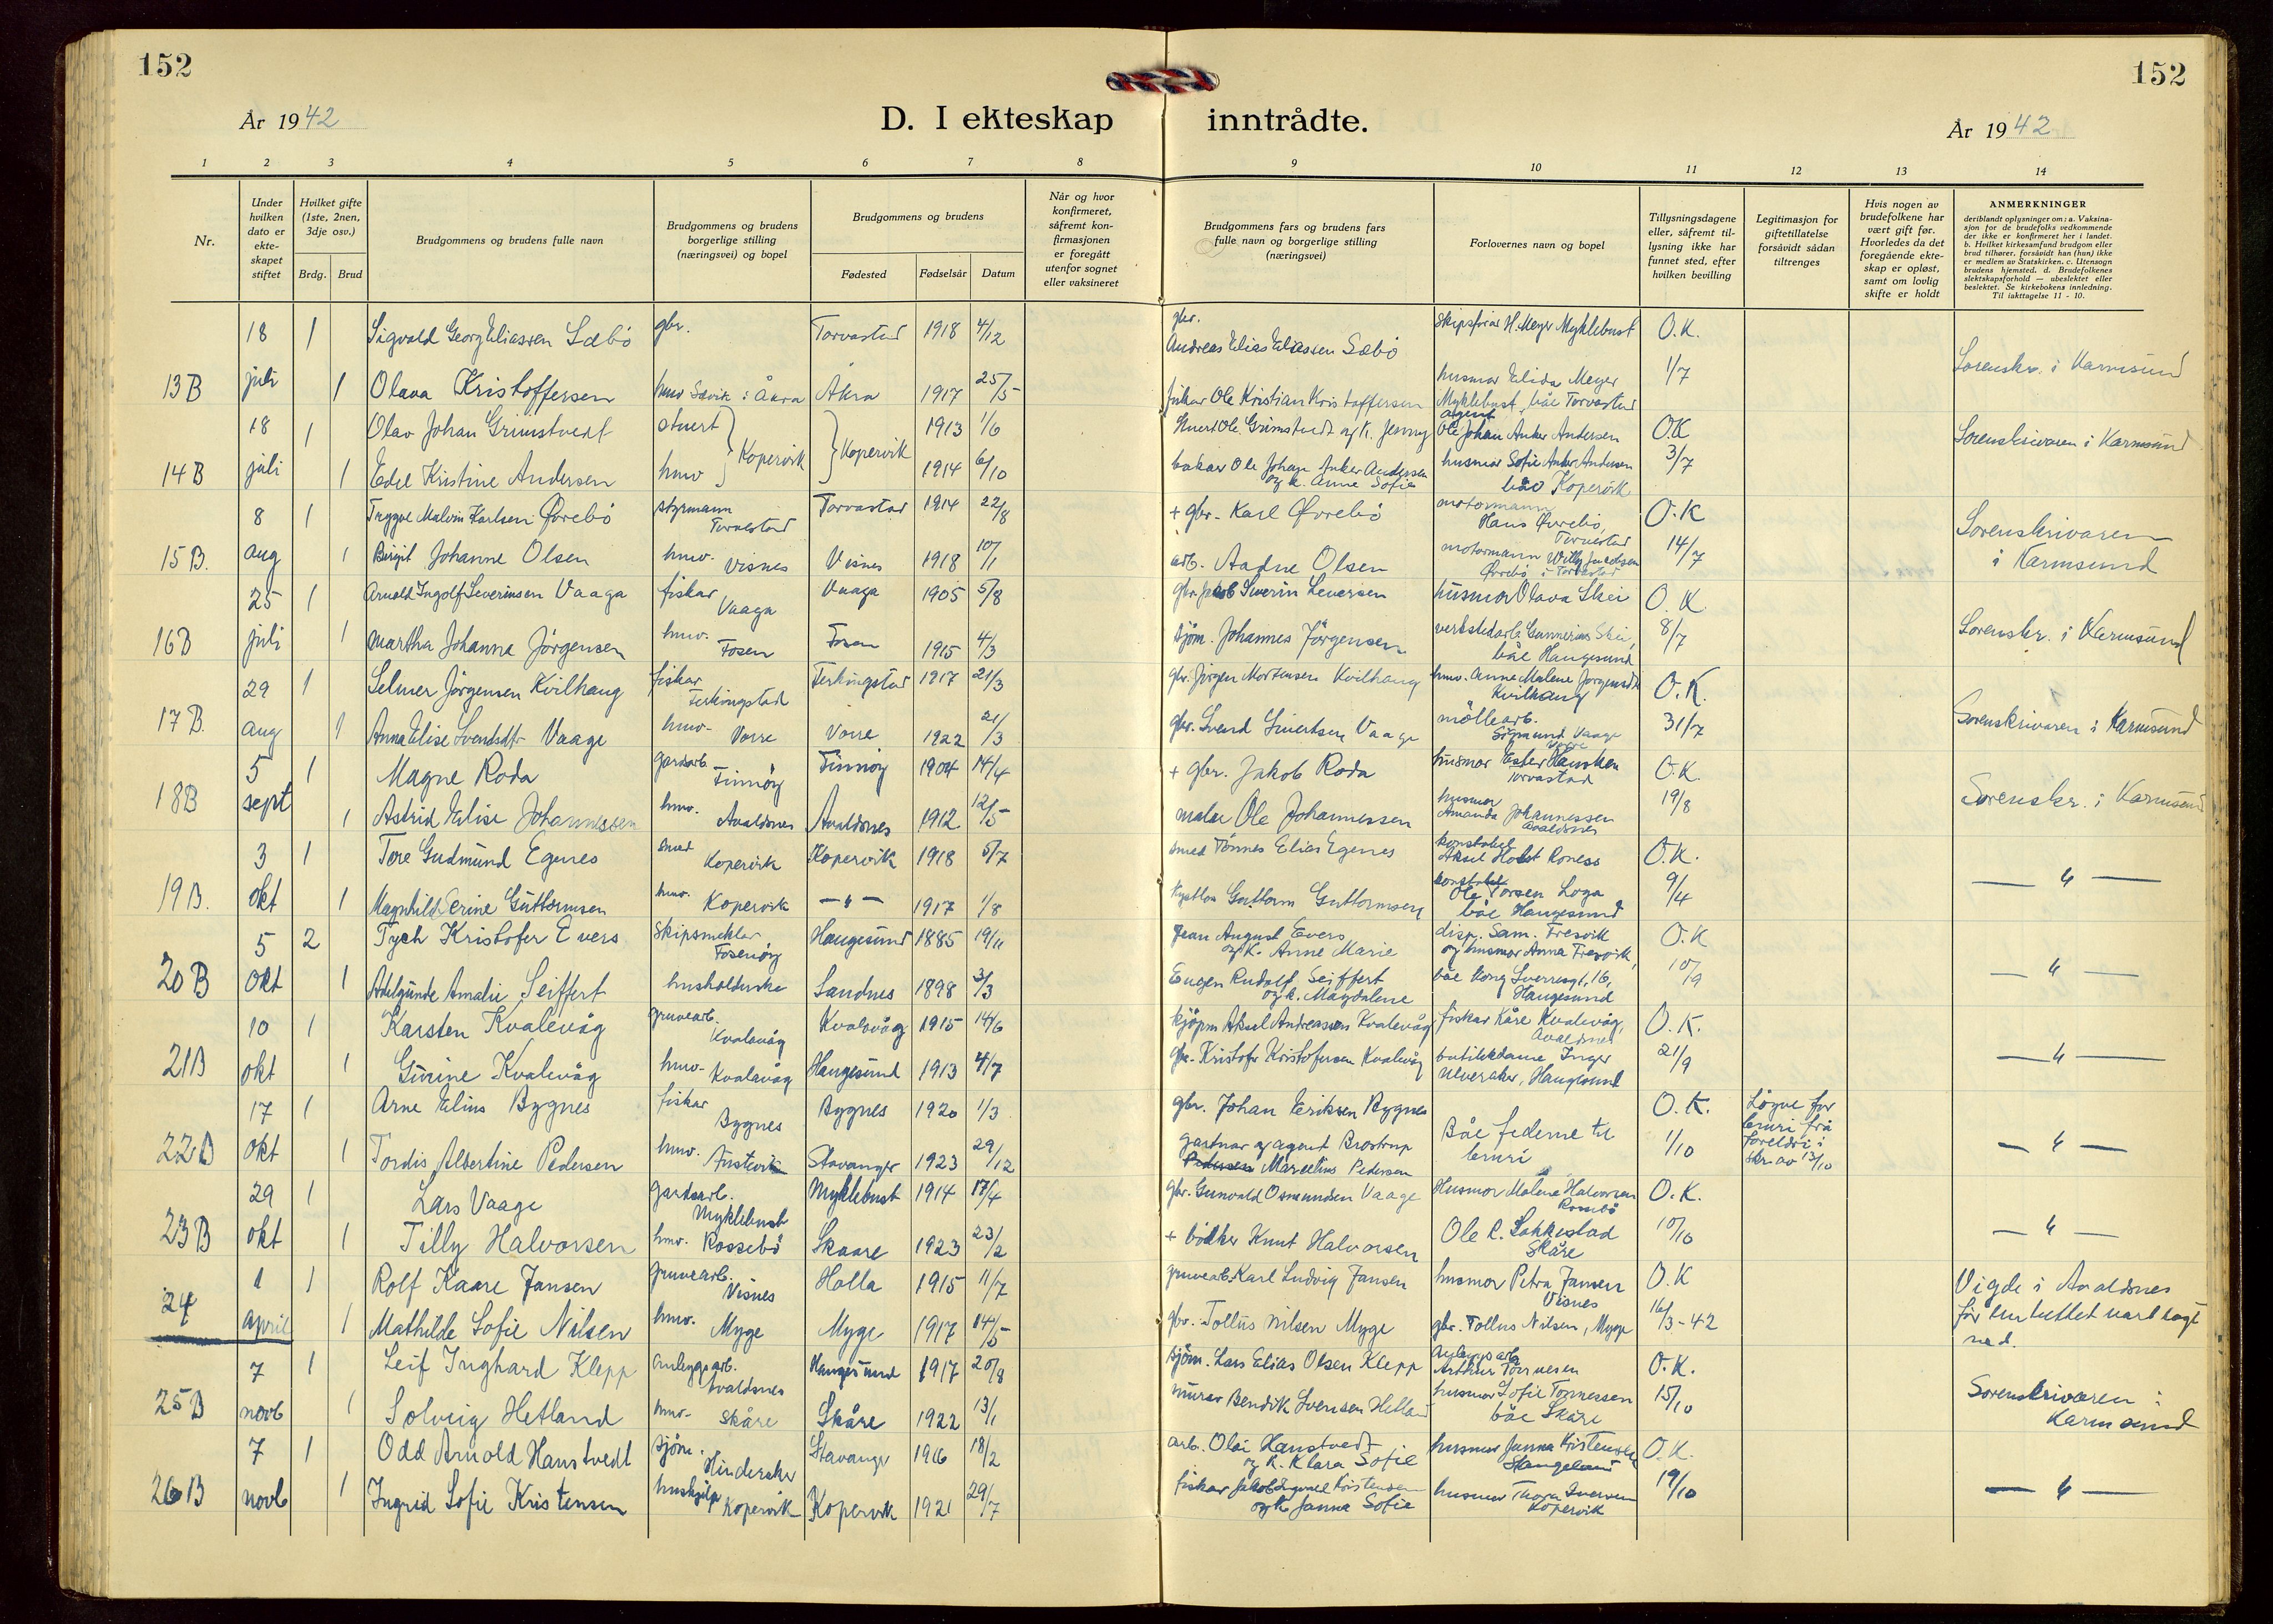 152
152
År 1942
D. I ekteskap inntrådte.
År 1942
1 2 3 4 5 6 7 8 9 10 11 12 13 14
Nr.
Under hvilken dato er ekte-skapet stiftet
Hvilket gifte (1ste, 2nen, 3dje osv.)
Brdg. Brud
Brudgommens og brudens fulle navn
Brudgommens og brudens borgerlige stilling (næringsvei) og bopel
Brudgommens og brudens
Fødested Fødselsår Datum
Når og hvor konfirmeret, såfremt kon-firmasjonen er foregått utenfor sognet eller vaksineret
Brudgommens fars og brudens fars fulle navn og borgerlige stilling (næringsvei)
Forlovernes navn og bopel
Tillysningsdagene eller, såfremt til-lysning ikke har funnet sted, efter hvilken bevilling
Legitimasjon for giftetillatelse forsåvidt sådan tiltrenges
Hvis nogen av brudefolkene har vært gift før. Hvorledes da det foregående ekte-skap er opløst, samt om lovlig skifte er holdt
ANMERKNINGER
deriblandt oplysninger om: a. Vaksina-sjon for de brudefolks vedkommende der ikke er konfirmeret her i landet. b. Hvilket kirkesamfund brudgom eller brud tilhører, forsåvidt han (hun) ikke er medlem av Statskirken. c. Utensogn brudens hjemsted. d. Brudefolkenes slektskapsforhold — ubeslektet eller beslektet. Se kirkebokens innledning. Til iakttagelse 11 - 10.
18 1 Sigvald Georg Eliassen Sæbö gbr. Torvastad 1918 4/12 gbr. Andreas Elias Eliassen Sæbö Skipsförar H. Meyer Myklebust O.K.
13B juli 1 Olava Kristoffersen hmv Sævik i Åkra Åkra 1917 25/5 fiskar Ole Kristian Kristoffersen husmor Elida Meyer Myklebust, båe Torvastad 1/7 Sorenskr. i Karmsund
18 1 Olav Johan Grimstvedt stuert Kopervik Kopervik 1913 1/6 Stuert Ole Grimstvedt og k. Jenny agent Ole Johan Anker Andersen O.K
14B juli 1 Edel Kristine Andersen hmv 1914 6/10 bakar Ole Johan Anker Andersen og k. Anne Sofie husmor Sofie Anker Andersen båe Kopervik 3/7 Sorenskrivaren i Karmsund
8 1 Trygve Malvin Karlsen Övrebö styrmann Torvastad Torvastad 1914 22/8 + gbr. Karl Övrebö motormann Hans Övrebö, Torvastad O.K
15B. aug 1 Birgit Johanne Olsen hmv. Visnes Visnes 1918 10/1 arb. Aadne Olsen motormann Willy Jakobsen Övrebö i Torvastad 14/7 Sorenskrivaren i Karmsund
25 1 Arnold Ingolf Severinsen Vaaga fiskar Vaaga Vaaga 1905 5/8 gbr. Jakob Severin Seversen husmor Olava Skei O.K.
16B juli 1 Martha Johanna Jörgensen hmv. Fosen Fosen 1915 4/3 sjöm. Johannes Jörgensen verkstedarb. Gunnerius Skei, båe Haugesund 8/7 Sorenskr. i Karmsund
29 1 Selmer Jörgensen Kvilhaug fiskar Ferkingstad Ferkingstad 1917 21/3 gbr. Jörgen Mortensen Kvilhaug hmv. Anne Malene Jörgensdtr Kvilhaug O.K.
17B. aug 1 Anna Elise Svendsdtr Vaage hmv. Vorre Vorre 1922 21/3 gbr. Svend Sivertsen Vaage möllearb. Sigmund Vaage Vorre 31/7 Sorenskrivaren i Karmsund
5 1 Magne Roda gardsarb Finnöy Finnöy 1904 14/4 + gbr. Jakob Roda husmor Ester Hausken Torvastad O.K.
18B sept 1 Astrid Elise Johannessen hmv. Avaldsnes Avaldsnes 1912 12/5 malar Ole Johannessen husmor Amanda Johannessen Avaldsnes 19/8 Sorenskr. i Karmsund
3 1 Tore Gudmund Egenes smed Kopervik Kopervik 1918 5/7 smed Tönnes Elias Egenes konstabel Aksel Holst Roness O.K.
19B. okt 1 Magnhild Serine Guttormsen hmv. Kopervik — " — 1917 1/8 Guttorm Guttormsen konstabel Ole Torsen Loga båe Haugesund 9/4 — " —
5 2 Tych Kristofer Evers Skipsmeklar Fosenöy Haugesund 1885 19/11 Jean August Evers og k. Anne Marie disp. Sam. Tresvik og husmor Anna Tresvik, O.K
20B okt 1 Adelgunde Amalie Seiffert husholderske Sandnes 1898 3/3 Eugen Rudolf Seiffert og k. Magdalene båe Kong Sverresgt. 16, Haugesund 10/9 — " —
10 1 Karsten Kvalevåg gruvearb. Kvalavåg Kvalavåg 1915 14/6 kjöpm Aksel Andreassen Kvalevåg fiskar Kåre Kvalevåg, Avaldsnes O.K.
21B okt 1 Gurine Kvalevåg hmv. Kvalavåg Haugesund 1913 4/7 gbr. Kristofer Kristofersen Kvalevåg butikkdame Inger Ulveraker, Haugesund 21/9 — " —
17 1 Arne Elius Bygnes fiskar Bygnes Bygnes 1920 1/3 gbr. Johan Eriksen Bygnes Båe federne til bruri O.K. Löyve for bruri frå foreldri i skr. av 13/10
22B okt 1 Tordis Albertine Pedersen hmv. Austevik Stavanger 1923 29/12 gartnar og agent Brostrup Pedersen Marcelius Pedersen 1/10 — " —
29 1 Lars Vaage gardsarb. Myklebust Myklebust 1914 17/4 gbr. Gunvald Osmundsen Vaage Husmor Malene Halvorsen Rossebö O.K.
23B okt 1 Tilly Halvorsen hmv. Rossebö Skaare 1923 23/2 + bödker Knut Halvorsen Ole R. Sakkestad Skåre 10/10 — " —
1 1 Rolf Kaare Jansen gruvearb. Visnes Holla 1915 11/7 gruvearb. Karl Ludvig Jansen husmor Petra Jansen Visnes O.K
24 april 1 Mathilde Sofie Nilsen hmv. Myge Myge 1917 14/5 gbr. Tollus Nilsen Myge gbr. Tollus Nilsen, Myge 16/3-42 Vigde i Avaldsnes för embettet vart lagt ned.
7 1 Leif Inghard Klepp anleggsarb. Avaldsnes Haugesund 1917 20/8 sjöm. Lars Elias Olsen Klepp Anleggsarb Arthur Tönnesen O.K.
25B novb 1 Solveig Hetland hmv. Skåre Skåre 1922 13/1 murar Bendik Svensen Hetland husmor Sofie Tönnessen båe Skåre 15/10 Sorenskrivaren i Karmsund
7 1 Odd Arnold Hanstvedt sjöm. Hinderaker Stavanger 1916 18/2 arb. Olai Hanstvedt og k. Klara Sofie husmor Janna Kristensen Stangeland O.K.
26B novb 1 Ingrid Sofie Kristensen hushjelp Kopervik Kopervik 1921 29/7 fiskar Jakob Kristensen og k Janna Sofie husmor Thora Iversen Kopervik 19/10 — " —